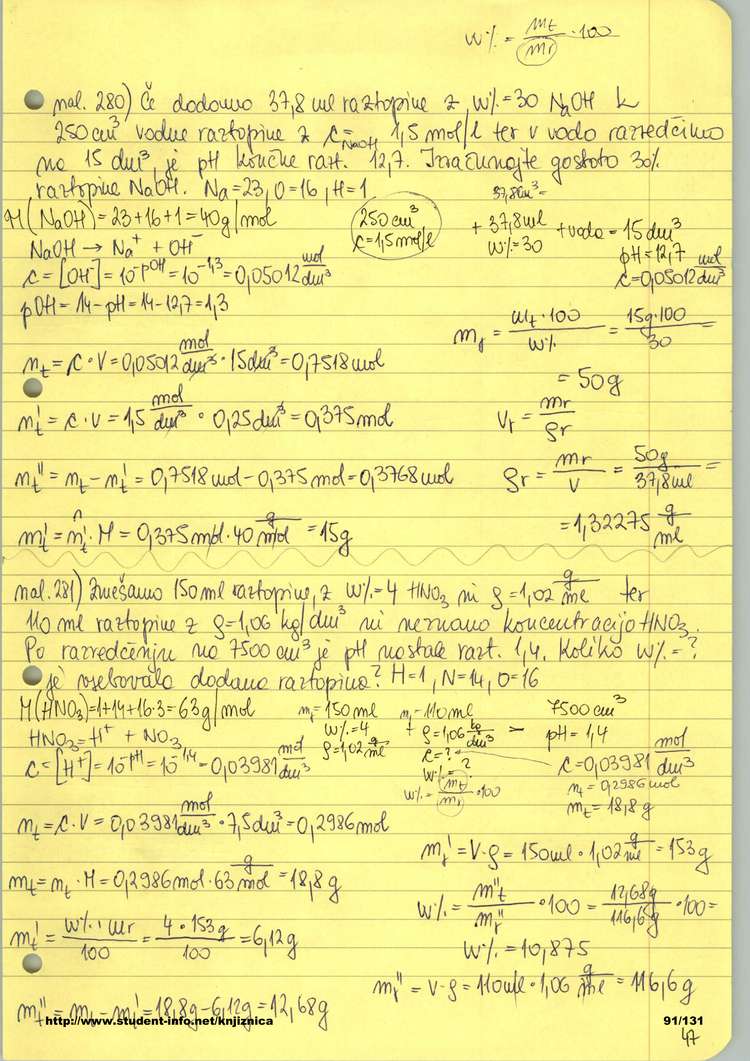 w% = mt/mr · 100
nal. 280) Če dodamo 37,8 ml raztopine z w%=30 NaOH k
250 cm³ vodne raztopine z c NaOH = 1,5 mol/l ter v vodo razredčimo
na 15 dm³, je pH končne razt. 12,7. Izračunajte gostoto 30%
raztopine NaOH. Na=23, O=16, H=1
M(NaOH) = 23+16+1 = 40 g/mol
NaOH → Na⁺ + OH⁻
c = [OH⁻] = 10⁻ᵖᴼᴴ = 10⁻¹,³ = 0,05012 mol/dm³
pOH = 14 - pH = 14 - 12,7 = 1,3
250 cm³
c = 1,5 mol/l
37,8 cm³ =
+ 37,8 ml
w% = 30
+ voda = 15 dm³
pH = 12,7
c = 0,05012 mol/dm³
nt = c · V = 0,05012 mol/dm³ · 15 dm³ = 0,7518 mol
nt' = c · V = 1,5 mol/dm³ · 0,25 dm³ = 0,375 mol
nt'' = nt - nt' = 0,7518 mol - 0,375 mol = 0,3768 mol
mt' = nt' · M = 0,375 mol · 40 g/mol = 15 g
mr = mt · 100/w% = 15g · 100/30 =
= 50 g
Vr = mr/ρr
ρr = mr/V = 50 g/37,8 ml =
= 1,32275 g/ml
nal. 281) Zmešamo 150 ml raztopine, z w%=4 HNO₃ in ρ=1,02 g/ml ter
110 ml raztopine z ρ=1,06 kg/dm³ in neznano koncentracijo HNO₃.
Po razredčenju na 7500 cm³ je pH nastale razt. 1,4. Koliko w%=?
je vsebovala dodana raztopina? H=1, N=14, O=16
M(HNO₃) = 1+14+16·3 = 63 g/mol
HNO₃ = H⁺ + NO₃
c = [H⁺] = 10⁻ᵖᴴ = 10⁻¹,⁴ = 0,03981 mol/dm³
= 150 ml
w% = 4
ρ = 1,02 g/ml
+
= 110 ml
ρ = 1,06 kg/dm³
c = ?
w% = ?
w% = mt/mr · 100
7500 cm³
pH = 1,4
c = 0,03981 mol/dm³
nt = 0,2986 mol
mt = 18,8 g
nt = c · V = 0,03981 mol/dm³ · 7,5 dm³ = 0,2986 mol
mt = nt · M = 0,2986 mol · 63 g/mol = 18,8 g
mt' = w% · mr/100 = 4 · 153 g/100 = 6,12 g
mt'' = mt - mt' = 18,8g - 6,12g = 12,68g
mr' = V · ρ = 150 ml · 1,02 g/ml = 153 g
w% = mt''/mr'' · 100 = 12,68g/116,6g · 100 =
w% = 10,875
mr'' = V · ρ = 110 ml · 1,06 g/ml = 116,6 g
http://www.student-info.net/knjiznica
91/131
47